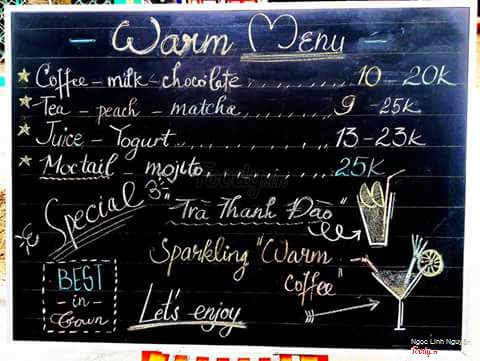 Warm Menu
Coffee - milk - chocolate ........ 10 - 20K
Tea - peach - matcha ........ 9 - 25K
Juice - Yogurt ........ 13 - 23K
Moctail - mojito ........ 25K
Foody.vn
Special
"Trà Thanh Đào"
Sparkling "Warm
coffee"
BEST
- in -
Town
Let's enjoy
Ngọc Linh Nguyễn
Foody.vn